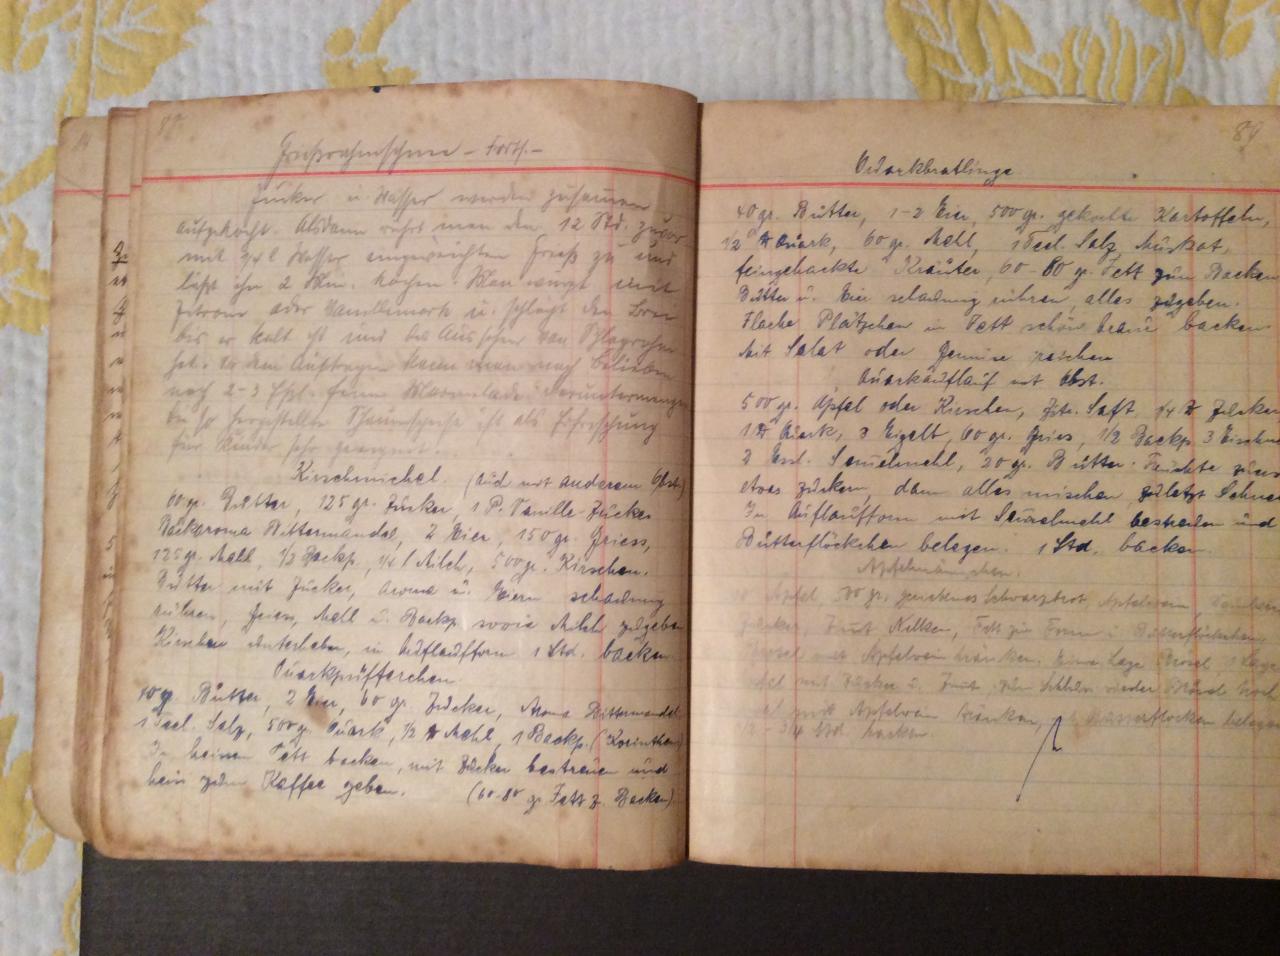 88
Grießrahmschnee – Forts. –
Zucker u. Wasser werden zusammen
aufgekocht. Alsdann rührt man den 12 Std. zuvor
mit 3/4 l Wasser eingeweichten Grieß zu und
läßt ihn 2 Min. kochen. Man würzt mit
Zitrone oder Vanillemark u. schlägt den Brei
bis er kalt ist und das Aussehen von Schlagrahm
hat. Vor dem Auftragen kann man nach Belieben
noch 2-3 Eßl. feine Marmelade daruntermengen
die so hergestellte Schaumspeise ist als Erfrischung
für Kinder sehr geeignet.
Kirschmichel. (auch mit anderem Obst)
60 gr. Butter, 125 gr. Zucker, 1 P. Vanille-Zucker
Backaroma Bittermandel, 2 Eier, 150 gr. Griess,
125 gr. Mehl, 1/2 Backp., 1/4 l Milch, 500 gr. Kirschen.
Butter mit Zucker, Aroma u. Eiern schaumig
rühren, Griess, Mehl u. Backp. sowie Milch zugeben
Kirschen unterheben, in Auflaufform 1 Std. backen.
Quarkpüfferchen.
40 gr. Butter, 2 Eier, 60 gr. Zucker, Aroma Bittermandel
1 Teel. Salz, 500 gr. Quark, 1/2 ℔ Mehl, 1 Backp. (Korinthen)
In heissem Fett backen, mit Zucker bestreuen und
heiss zum Kaffee geben. (60-80 gr. Fett z. Backen)
89
Quarkbratlinge
40 gr. Butter, 1-2 Eier, 500 gr. gekochte Kartoffeln,
1/2 ℔ Quark, 60 gr. Mehl, 1 Teel. Salz, Muskat,
feingehackte Kräuter, 60-80 gr. Fett zum Backen
Butter u. Eier schaumig rühren, alles zugeben.
Flache Plätzchen in Fett schön braun backen
Mit Salat oder Gemüse reichen
Quarkauflauf mit Obst.
500 gr. Äpfel oder Kirschen, Zitr. Saft, 1/4 ℔ Zucker
1 ℔ Quark, 3 Eigelb, 60 gr. Gries, 1/2 Backp. 3 Eischnee
2 Essl. Semmelmehl, 20 gr. Butter. Früchte
etwas zuckern, dann alles mischen, zuletzt Schnee
In Auflaufform mit Semmelmehl bestreuen und
Butterflöckchen belegen. 1 Std. backen.
Apfel, 500 gr. geriebenes Schwarzbrot, Apfelwein,
Zucker, Zimt, Nelken, Fett zur Form u. Butterflöckchen
Brösel mit Apfelwein tränken. Eine Lage Brösel, 1 Lage
Äpfel mit Zucker u. Zimt, zum Schluss wieder Brösel
mit Apfelwein tränken, Butterflocken belegen
1/2 - 3/4 Std. backen.